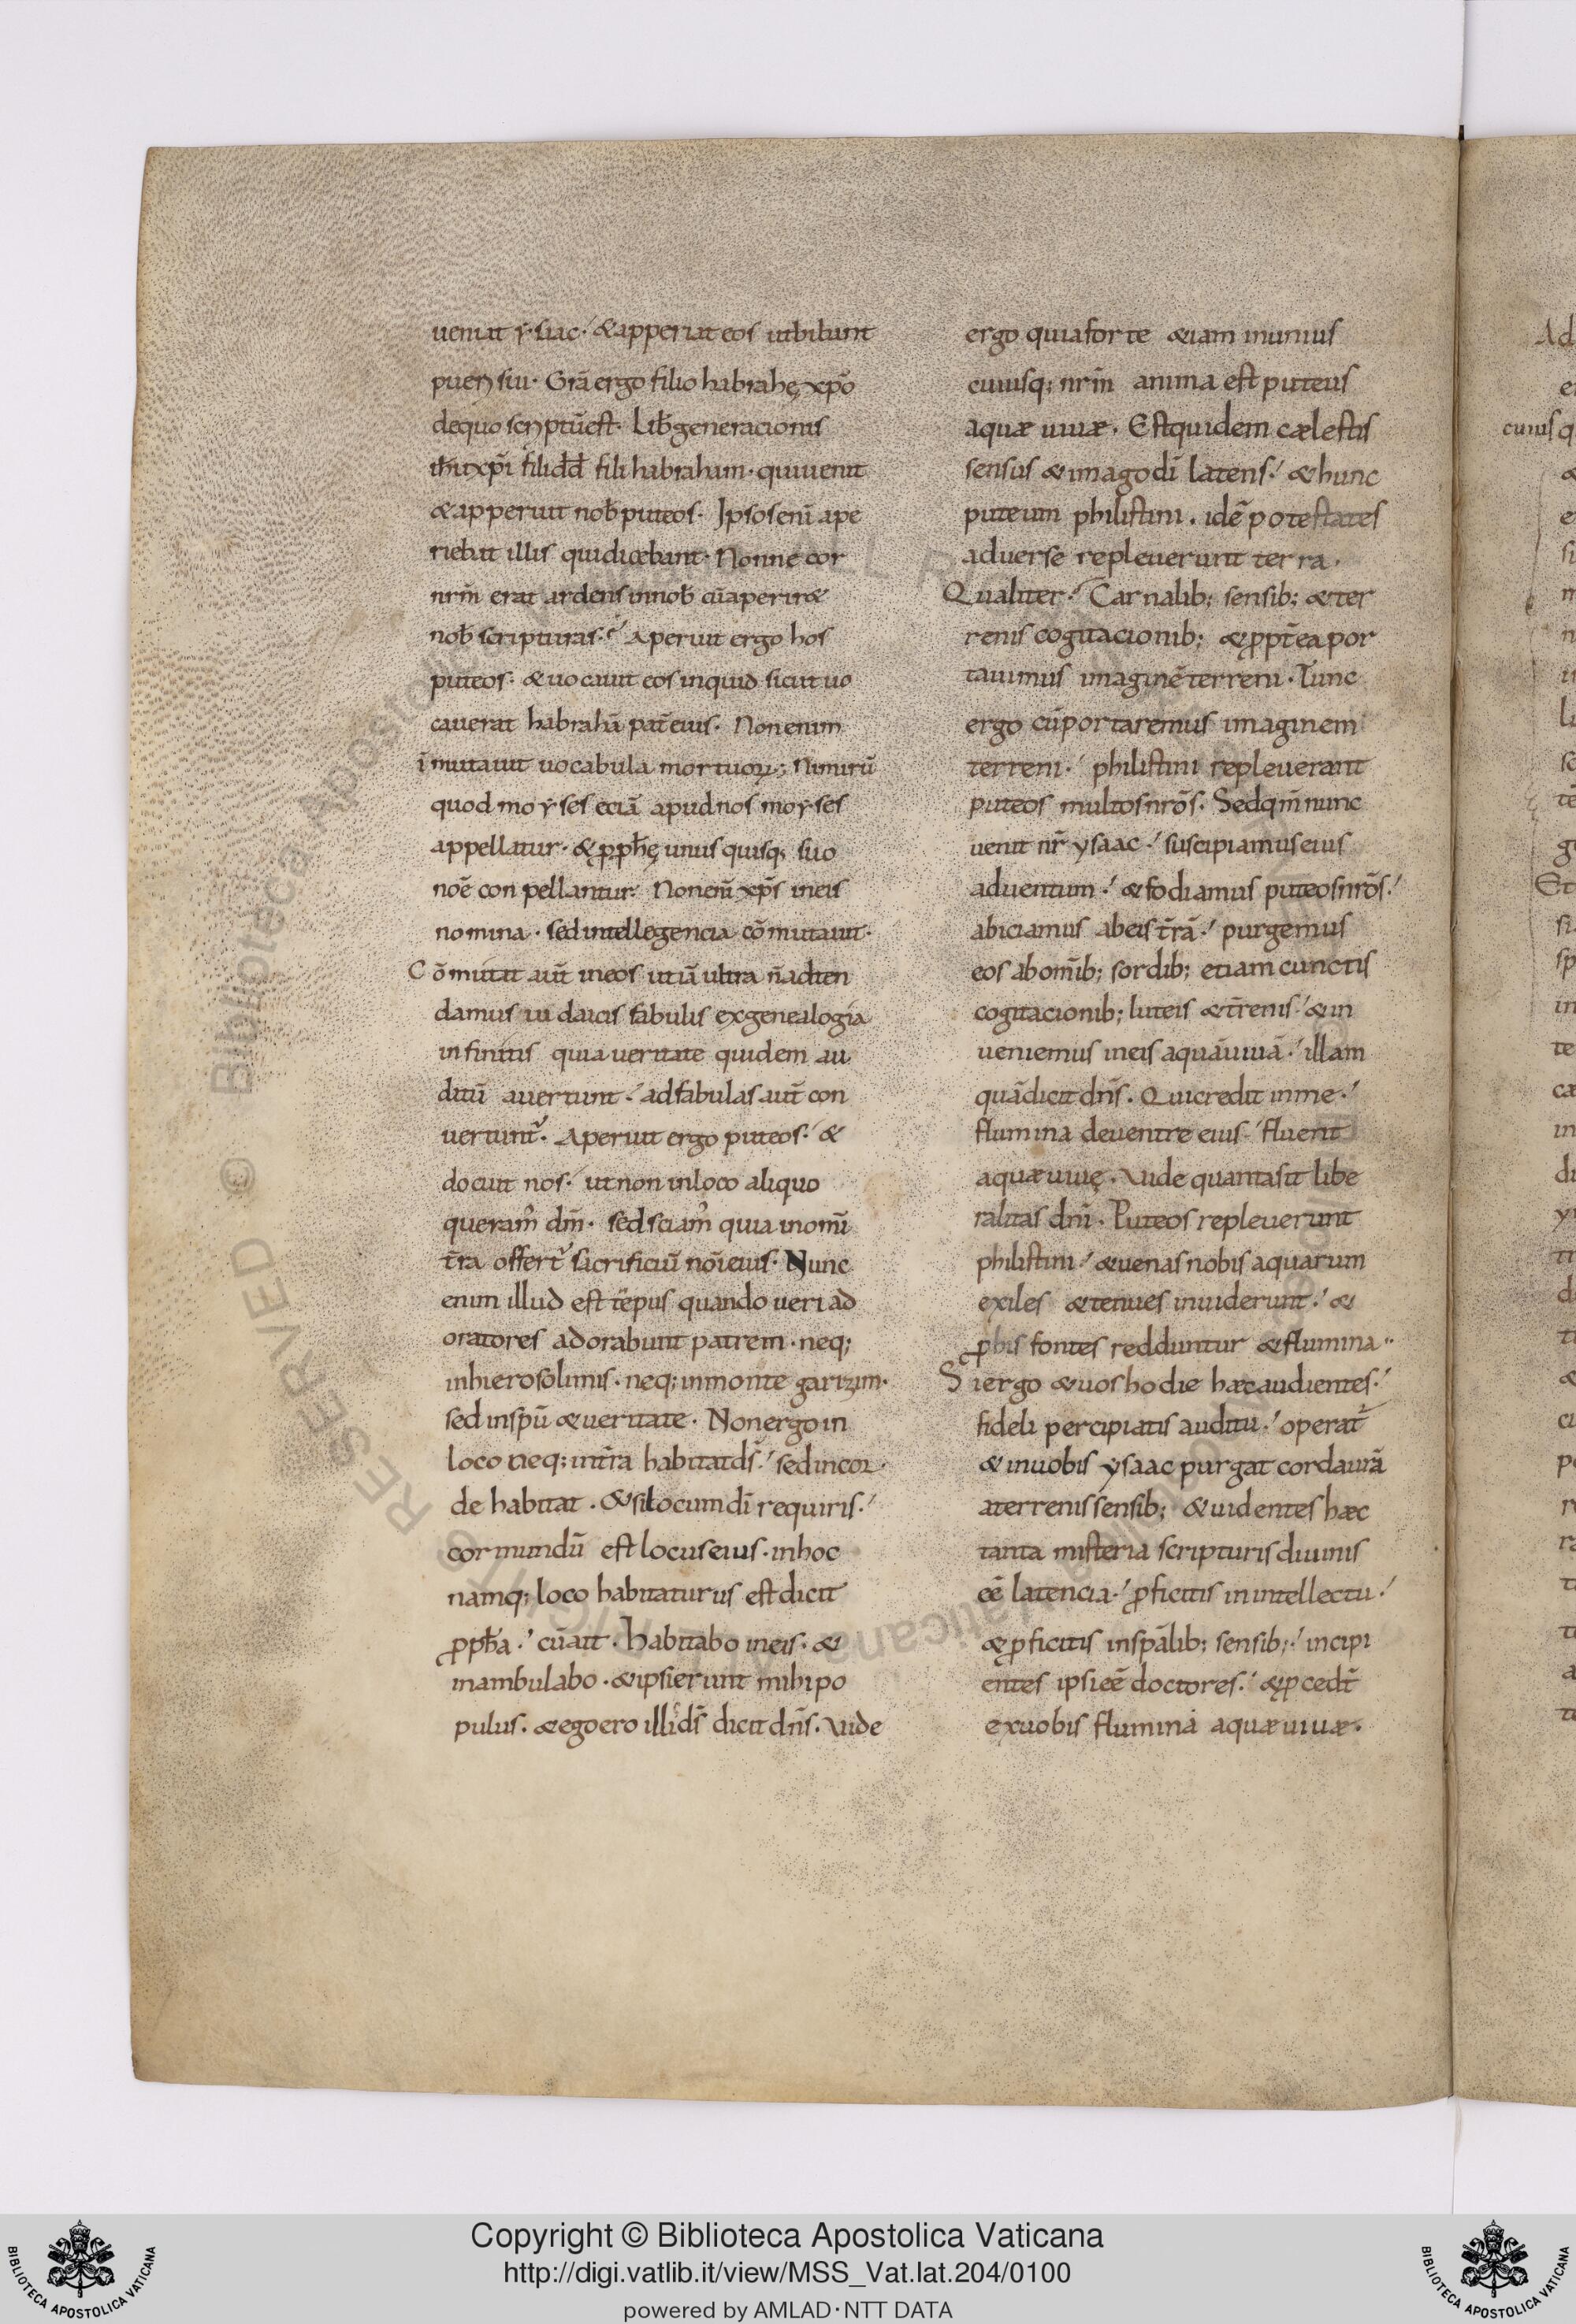 ueniat ẏ·siac·' & apperiat eos ut bibant
pueri sui· Grā ergo filio habrahę xp̄o
de quo scriptū est· Lib generacionis
ih̄u xp̄i fili dd̄ fili habraham· qui uenit
& apperuit nob̄ puteos· Ipsos enī ape
riebat illis qui dicebant· Nonne cor
nr̄m erat ardens in nob̄ cū aperir&
nob̄ scripturas·' Aperuit ergo hos
puteos· & uocauit eos inquid sicut uo
cauerat habrahā pat̄ eius· Non enim
ī mutauit uocabula mortuoꝝ; Nimirū
quod moẏses eciā apud nos moẏses
appellatur· & ꝓph̄ę unus quisq; suo
noē conpellantur· Non enī xp̄s in eis
nomina· sed intellegencia cō mutauit·
Cō mutat aut̄ in eos ut iā ultra n̄ adten
damus iudaicis fabulis ex genealogia
infinitis quia ueritate quidem au
ditū auertunt·' ad fabulas aut̄ con
uertunt̄· Aperuit ergo puteos·' &
docuit nos·' ut non in loco aliquo
queram' dm̄· sed sciam' quia in omī
t̄ra offert̄ sacrificiū nōi eius· Nunc
enim illud est tēpus quando ueri ad
oratores adorabunt patrem· neq;
in hierosolimis· neq; in monte garizim·
sed in spū & ueritate· Non ergo in
loco neq; in t̄ra habitat ds̄·' sed in cor
de habitat· & si locum dī requiris·'
cor mundū est locus eius· in hoc
namq; loco habitaturus est dicit
ꝓph̄a·' cū ait· Habitabo in eis· &
inambulabo· & ipsi erunt mihi po
pulus· & ego ero illi ds̄ dicit dn̄s· Uide
ergo quia forte &iam in unius
cuiusq; nr̄m anima est puteus
aquæ uiuæ· Est quidem cælestis
sensus & imago dī latens·' & hunc
puteum philistini· idē potestates
aduerse repleuerunt terra·
Qualiter·' Carnalib; sensib; & ter
renis cogitacionib; & ꝓpt̄ea por
tauimus imaginē terreni· Tunc
ergo cū portaremus imaginem
terreni·' philistini repleuerant
puteos multos nr̄os· Sed qm̄ nunc
uenit nr̄ ysaac·' suscipiamus eius
aduentum·' & fodiamus puteos nr̄os·'
abiciamus ab eis t̄rā·' purgemus
eos ab om̄ib; sordib; etiam cunctis
cogitacionib; luteis & t̄renis·' & in
ueniemus in eis aquā uiuā·' illam
quā dicit dn̄s· Qui credit in me·'
flumina de uentre eius·' fluent
aquæ uiuę· Uide quanta sit libe
ralitas dnī· Puteos repleuerunt
philistini·' & uenas nobis aquarum
exiles & tenues inuiderunt·' &
ꝓ his fontes redduntur & flumina··
Si ergo & uos hodie hæc audientes·'
fideli percipiatis auditu·' operat̄
& in uobis ysaac purgat corda ur̄ā
a terrenis sensib; & uidentes hæc
tanta misteria scripturis diuinis
eē latencia·' ꝓficitis in intellectu·'
& ꝓficitis in spālib; sensib;·' incipi
entes ipsi eē doctores·' & ꝓcedt̄
ex uobis flumina aquæ uiuæ·
cuius
Copyright © Biblioteca Apostolica Vaticana
http://digi.vatlib.it/view/MSS_Vat.lat.204/0100
powered by AMLAD·NTT DATA